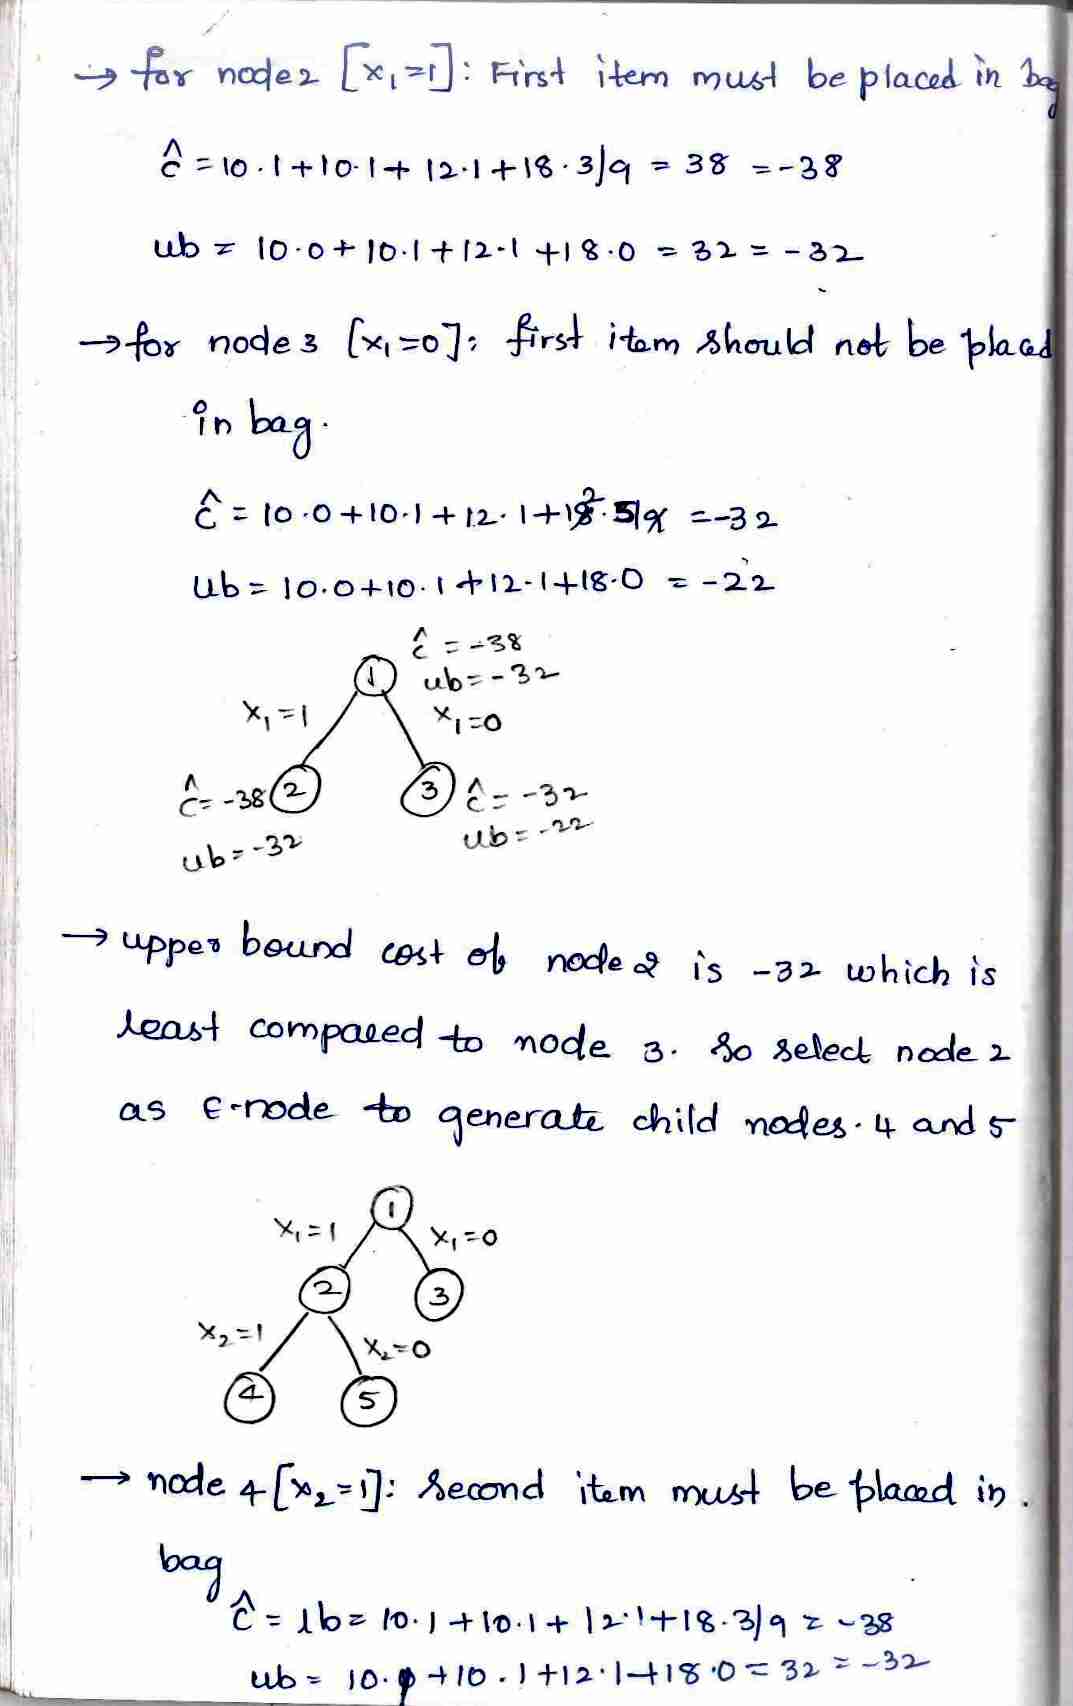 → for node2 [x₁=1]: First item must be placed in bag
ĉ = 10.1+10.1+12.1+18.3/9 = 38 = -38
ub = 10.0+10.1+12.1+18.0 = 32 = -32
→ for node3 [x₁=0]: first item should not be placed
in bag.
ĉ = 10.0+10.1+12.1+18².5/9 = -32
Ub = 10.0+10.1+12.1+18.0 = -22
ĉ = -38
1 ub = -32
x₁=1 x₁=0
ĉ = -38 2 3 ĉ = -32
ub = -32 ub = -22
→ upper bound cost of node 2 is -32 which is
least compared to node 3. So select node 2
as E-node to generate child nodes. 4 and 5
1
x₁=1 x₁=0
2 3
x₂=1 x₂=0
4 5
→ node 4 [x₂=1]: Second item must be placed in.
bag
ĉ = lb = 10.1+10.1+12.1+18.3/9 = -38
ub = 10.1+10.1+12.1+18.0 = 32 = -32